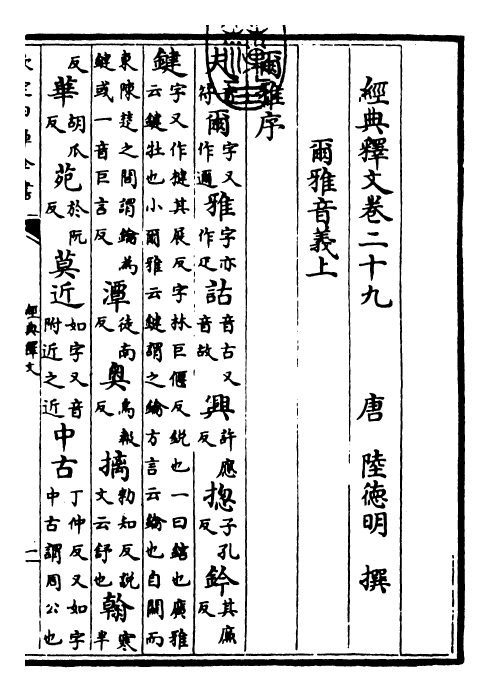 經典釋文卷二十九 唐 陸徳明 撰
爾雅音義上
爾雅序
夫音符爾字又作邇雅字亦作疋詁音古又音故興許應反揔子孔反鈐其廉反
鍵字又作揵其展反字林巨偃反鋭也一曰鎋也廣雅云鍵牡也小爾雅云鍵謂之鑰方言云鑰也自關而
東陳楚之間謂鑰為鍵或一音巨言反潭徒南反奥烏報反摛勑知反説文云舒也翰寒半
反華胡瓜反苑於阮反莫近如字又音附近之近中古丁仲反又如字中古謂周公也
經典釋文
一